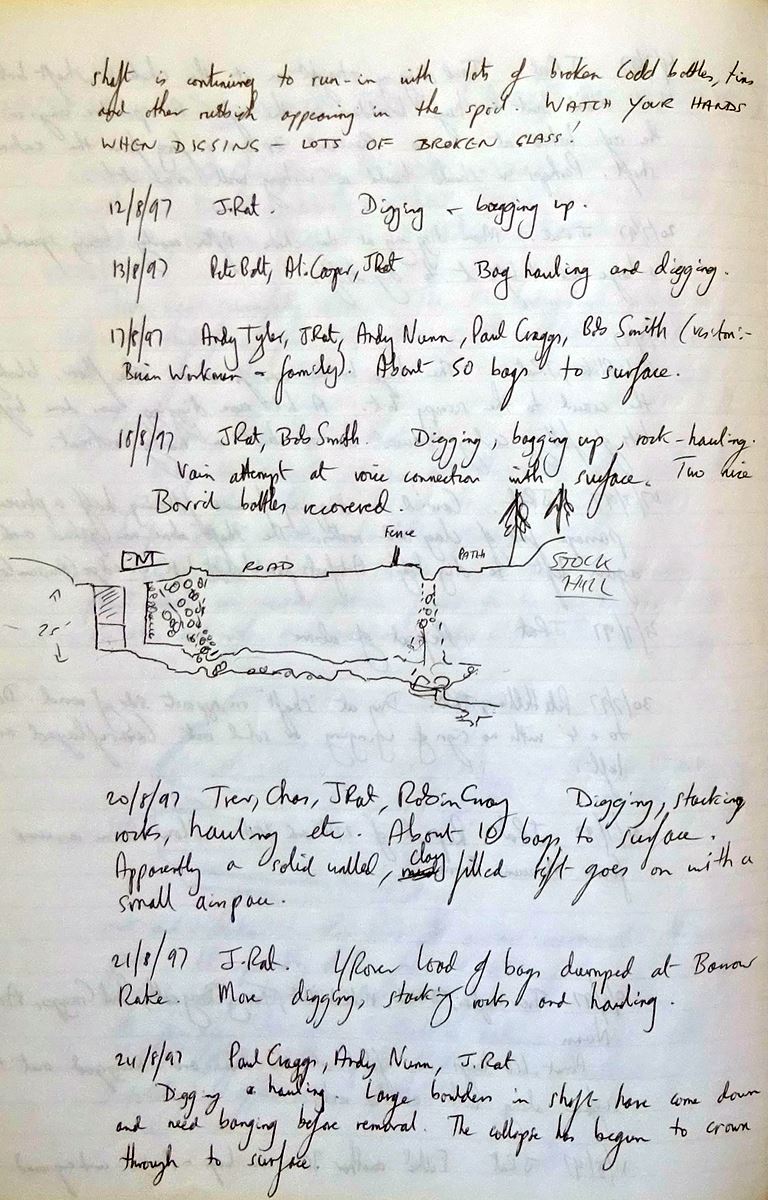 shaft is continuing to run-in with lots of broken Codd bottles, tins
and other rubbish appearing in the spoil. WATCH YOUR HANDS
WHEN DIGGING - LOTS OF BROKEN GLASS!
12/8/97 J.Rat. Digging - bagging up.
13/8/97 Pete Bolt, Ali Cooper, JRat Bag hauling and digging.
17/8/97 Andy Tyler, JRat, Andy Nunn, Paul Craggs, Bob Smith (visitors:-
Brian Workman + family). About 50 bags to surface.
18/8/97 JRat, Bob Smith. Digging, bagging up, rock-hauling.
Vain attempt at voice connection with surface. Two nice
Bovril bottles recovered.
ENT ROAD Fence PATH STOCK
HILL
25'
20/8/97 Trev, Chas, JRat, Robin Gray Digging, stacking
rocks, hauling etc. About 10 bags to surface.
Apparently a solid walled, clay filled rift goes on with a
small airspace.
21/8/97 J.Rat. L/Rover load of bags dumped at Barrow
Rake. More digging, stacking rocks and hauling.
24/8/97 Paul Craggs, Andy Nunn, J.Rat
Digging & hauling. Large boulders in shaft have come down
and need banging before removal. The collapse has begun to crown
through to surface.